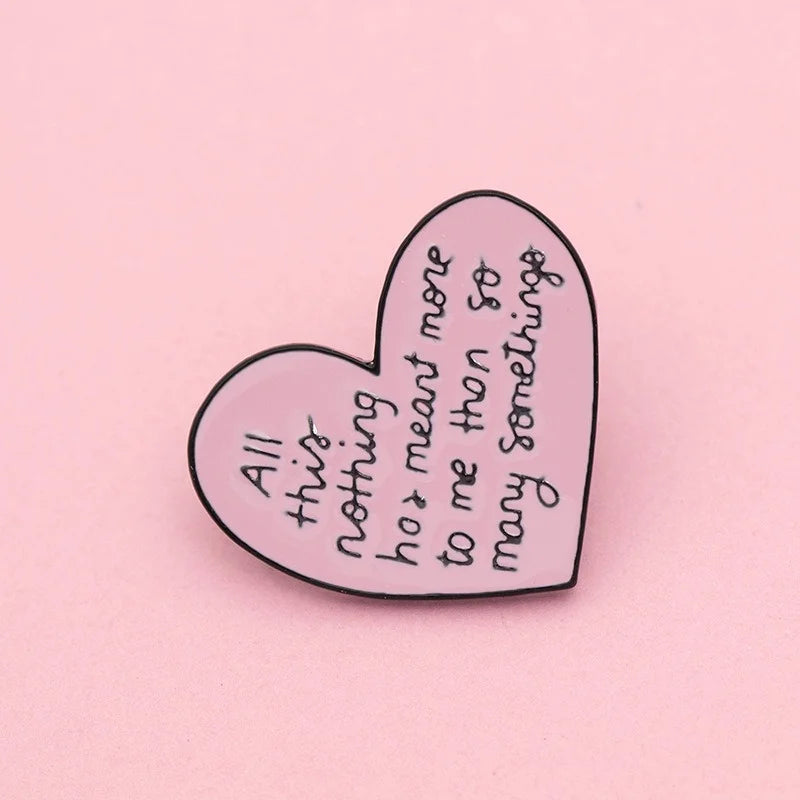 All
this
nothing
has meant more
to me than so
many somethings